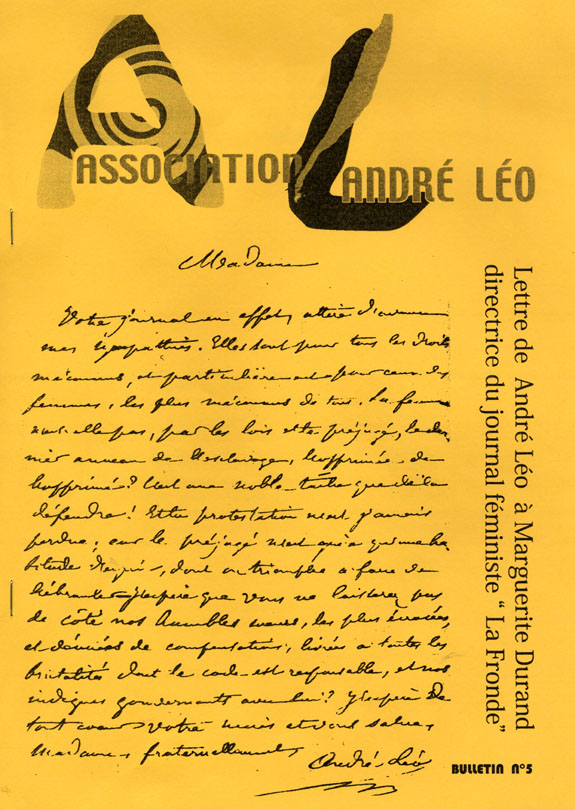 ASSOCIATION ANDRÉ LÉO
Lettre de André Léo à Marguerite Durand
directrice du journal féministe " La Fronde"
Madame
Votre journal en effet, attire d'avance
mes sympathies. Elles sont pour tous les droits
méconnus, et particulièrement pour ceux des
femmes, les plus méconnus de tous. La femme
n'est-elle pas, par les lois et les préjugés, le der-
nier anneau de l'esclavage, l'opprimée de
l'opprimé? C'est une noble tâche que de la
défendre! Et la protestation n'est jamais
perdue; car le préjugé n'est qu'une ha
bitude d'esprit, dont on triomphe à force de
l'ébranler. J'espère que vous ne laisserez pas
de côté nos humbles sœurs, les plus
et dénuées de compensations, livrées à toutes les
brutalités dont le code est responsable, et nos
indignes gouvernants avec lui? J'espère de
tout cœur votre succès et vous salue,
Madame, fraternellement
André Léo
BULLETIN N°5